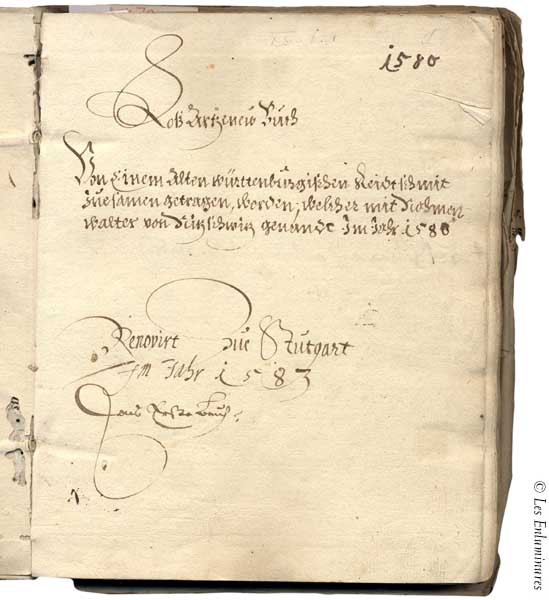 1580
Roß Artzeneÿ Buch
Von Einem Alten württenburgischen Reidtschmit
zue samen getragen, worden, welcher mit Nahmen
walter von genandt Im Jahr 1580
Renovirt zue Stutgart
Im Jahr 1583
Das Erste Buch
© Les Enluminures